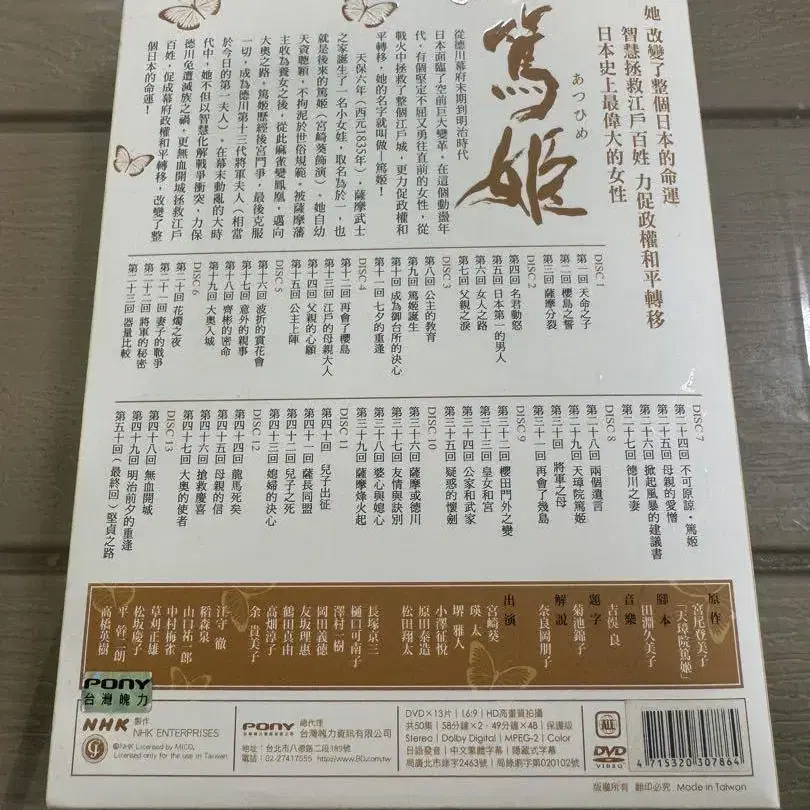 她 改變了整個日本的命運
智慧拯救江戶百姓 力促政權和平轉移
日本史上最偉大的女性
篤姬
あつひめ
從德川幕府末期到明治時代
日本面臨了空前巨大變革，在這個動盪年
代，有個堅定不屈又勇往直前的女性，從
戰火中拯救了整個江戶城，更力促政權和
平轉移，她的名字就叫做—篤姬！
天保六年（西元1835年），薩摩武士
之家誕生了一名小女娃，取名為於一，也
就是後來的篤姬（宮崎葵飾演）。她自幼
天資聰穎，不拘泥於世俗規範。被薩摩藩
主收為養女之後，從此麻雀變鳳凰，邁向
大奧之路。篤姬歷經後宮鬥爭，最後克服
一切，成為德川第十三代將軍夫人（相當
於今日的第一夫人）。在幕末動亂的大時
代中，她不但以智慧化解戰爭衝突，力保
德川免遭滅族之禍，更無血開城拯救江戶
百姓，促成幕府政權和平轉移，改變了整
個日本的命運！
DISC 1
第一回 天命之子
第二回 櫻島之誓
第三回 薩摩分裂
DISC 2
第四回 名君動怒
第五回 日本第一的男人
第六回 女人之路
第七回 父親之淚
DISC 3
第八回 公主的教育
第九回 篤姬誕生
第十回 成為御台所的決心
第十一回 七夕的重逢
DISC 4
第十二回 再會了櫻島
第十三回 江戶的母親大人
第十四回 父親的心願
第十五回 公主上陣
DISC 5
第十六回 波折的賞花會
第十七回 意外的親事
第十八回 齊彬的密命
第十九回 大奧入城
DISC 6
第二十回 花燭之夜
第二十一回 妻子的戰爭
第二十二回 將軍的秘密
第二十三回 器量比較
DISC 7
第二十四回 不可原諒‧篤姬
第二十五回 母親的愛憎
第二十六回 掀起風暴的建議書
第二十七回 德川之妻
DISC 8
第二十八回 兩個遺言
第二十九回 天璋院篤姬
第三十回 將軍之母
第三十一回 再會了幾島
DISC 9
第三十二回 櫻田門外之變
第三十三回 皇女和宮
第三十四回 公家和武家
第三十五回 疑惑的懷劍
DISC 10
第三十六回 薩摩或德川
第三十七回 友情與訣別
第三十八回 婆心與媳心
第三十九回 薩摩烽火起
DISC 11
第四十回 兒子出征
第四十一回 薩長同盟
第四十二回 兒子之死
第四十三回 媳婦的決心
DISC 12
第四十四回 龍馬死矣
第四十五回 母親的信
第四十六回 搶救慶喜
第四十七回 大奧的使者
DISC 13
第四十八回 無血開城
第四十九回 明治前夕的重逢
第五十回（最終回）堅貞之路
原作
宮尾登美子
「天璋院篤姬」
腳本
田淵久美子
音樂
吉俣 良
題字
菊池錦子
解說
奈良岡朋子
出演
宮崎葵
瑛 太
堺 雅人
小澤征悅
原田泰造
松田翔太
長塚京三
樋口可南子
澤村一樹
岡田義德
友坂理惠
鶴田真由
高畑淳子
余 貴美子
江守 徹
稻森泉
山口祐一郎
中村梅雀
草刈正雄
松坂慶子
平 幹二朗
高橋英樹
PONY
台灣魄力
NHK 製作
NHK ENTERPRISES
©NHK Licensed by MICO,
Licensed only for the use in Taiwan
PONY 總代理
台灣魄力資訊有限公司
地址：台北市八德路二段189號
電話：02-27417555 http://www.BD.com.tw
DVD×13片｜16:9｜HD高畫質拍攝
共50集｜58分鐘×2‧49分鐘×48｜保護級
Stereo｜Dolby Digital｜MPEG-2｜Color
日語發音｜中文繁體字幕｜隱藏式字幕
局廣北市錄字2463號｜局錄劇字第020102號
ALL
DVD
VIDEO
4715320307864
版權所有 翻印必究 Made in Taiwan